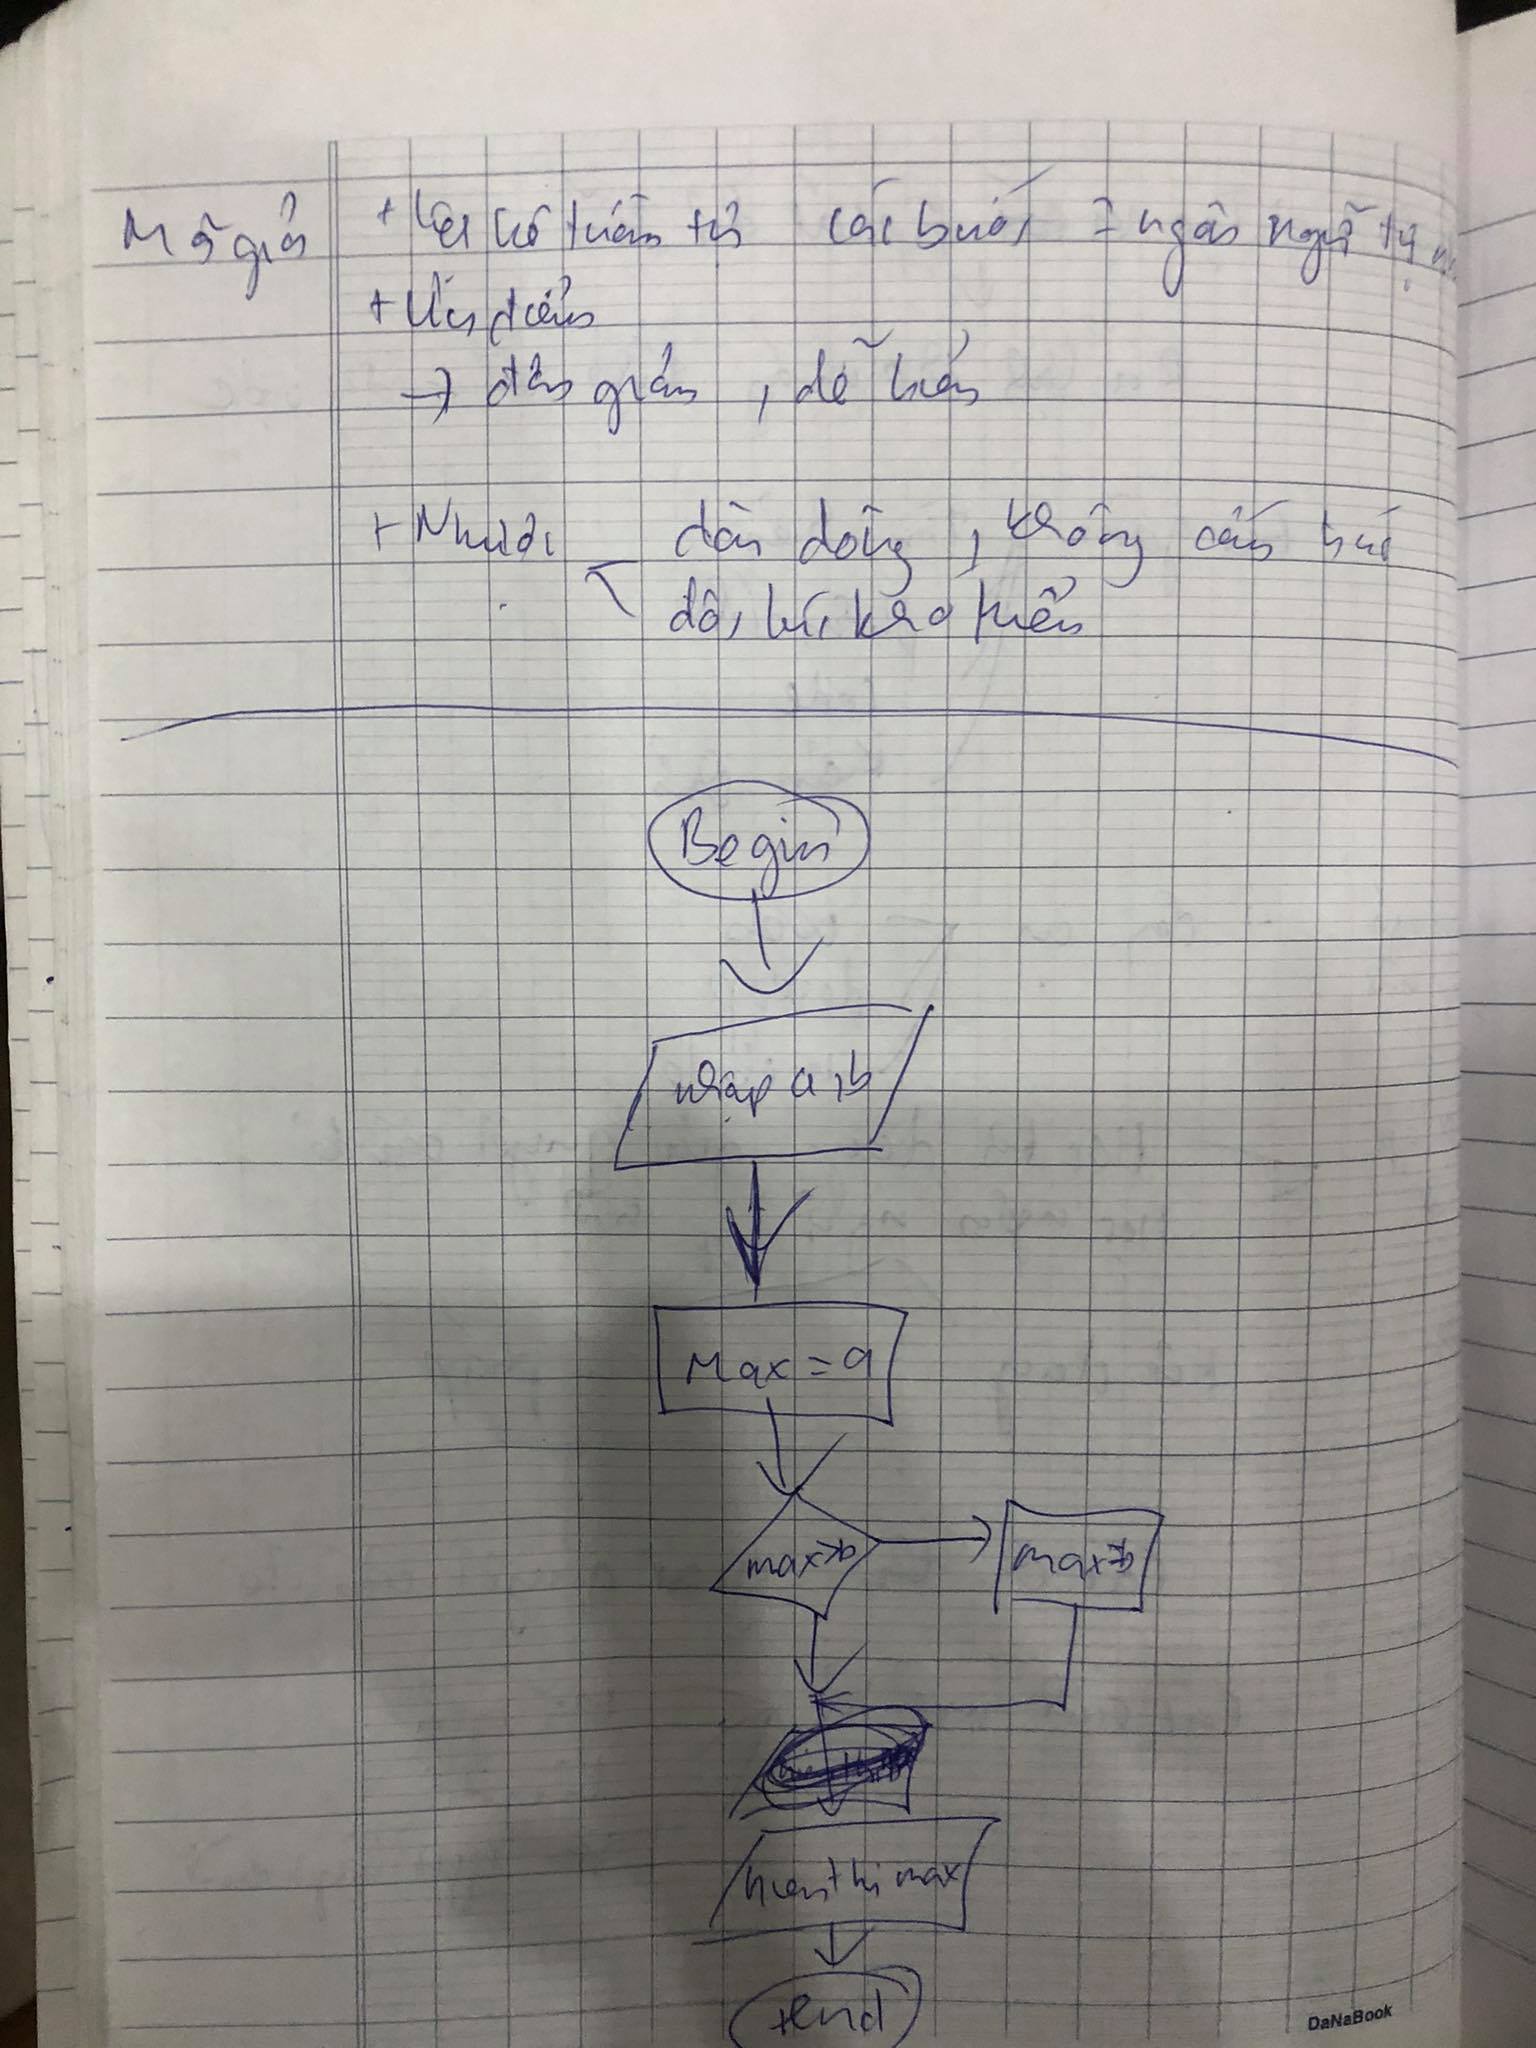 Mã giả + Liệt kê tuần tự các bước = ngôn ngữ tự
+ Ưu điểm
→ đơn giản, dễ hiểu
+ Nhược dài dòng, không cấu trúc
đôi khi khó hiểu
Begin
nhập a, b
Max = a
max>b
max=b
hiển thị max
End
DaNaBook